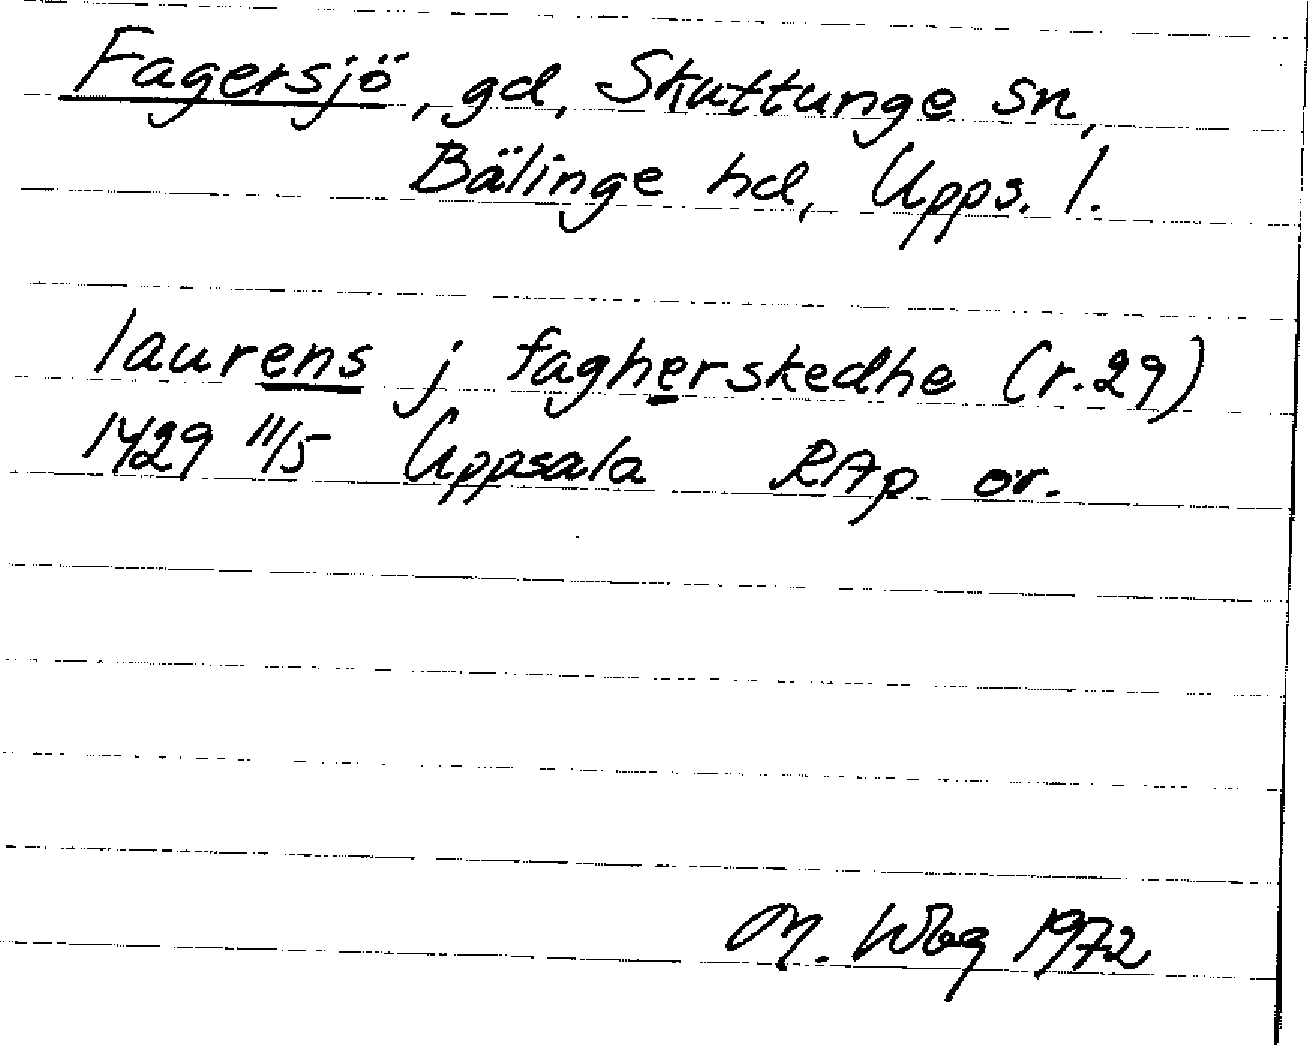 Fagersjö, gd, Skuttunge sn,
Bälinge hd, Upps. l.
laurens j fagherskedhe (r.29)
1429 11/5 Uppsala RAp or.
M. Wbg 1972